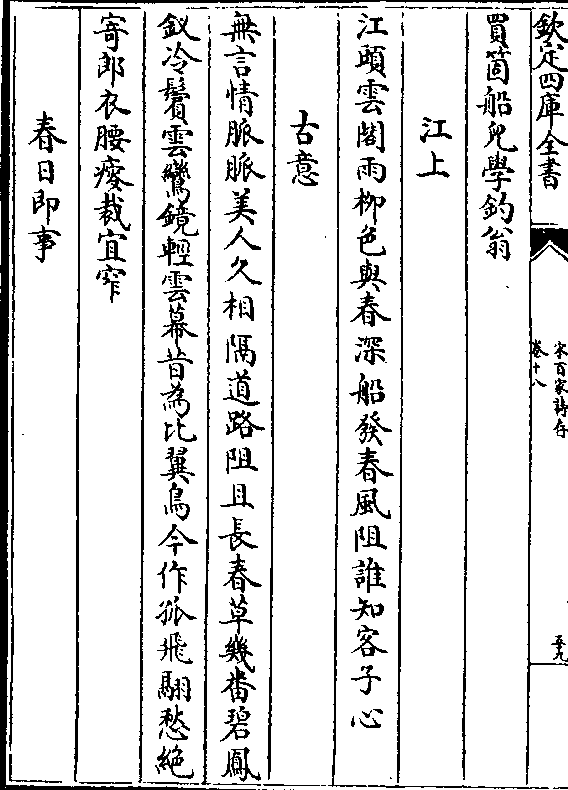 欽定四庫全書
宋百家詩存
卷十八
五九
買箇船兒學釣翁
江上
江頭雲閣雨柳色與春深船發春風阻誰知客子心
古意
無言情脈脈美人久相隔道路阻且長春草幾畨碧鳳
釵冷鬢雲鸞鏡輕雲幕昔為比翼鳥今作孤飛翮愁絶
寄郎衣腰瘦裁宜窄
春日即事